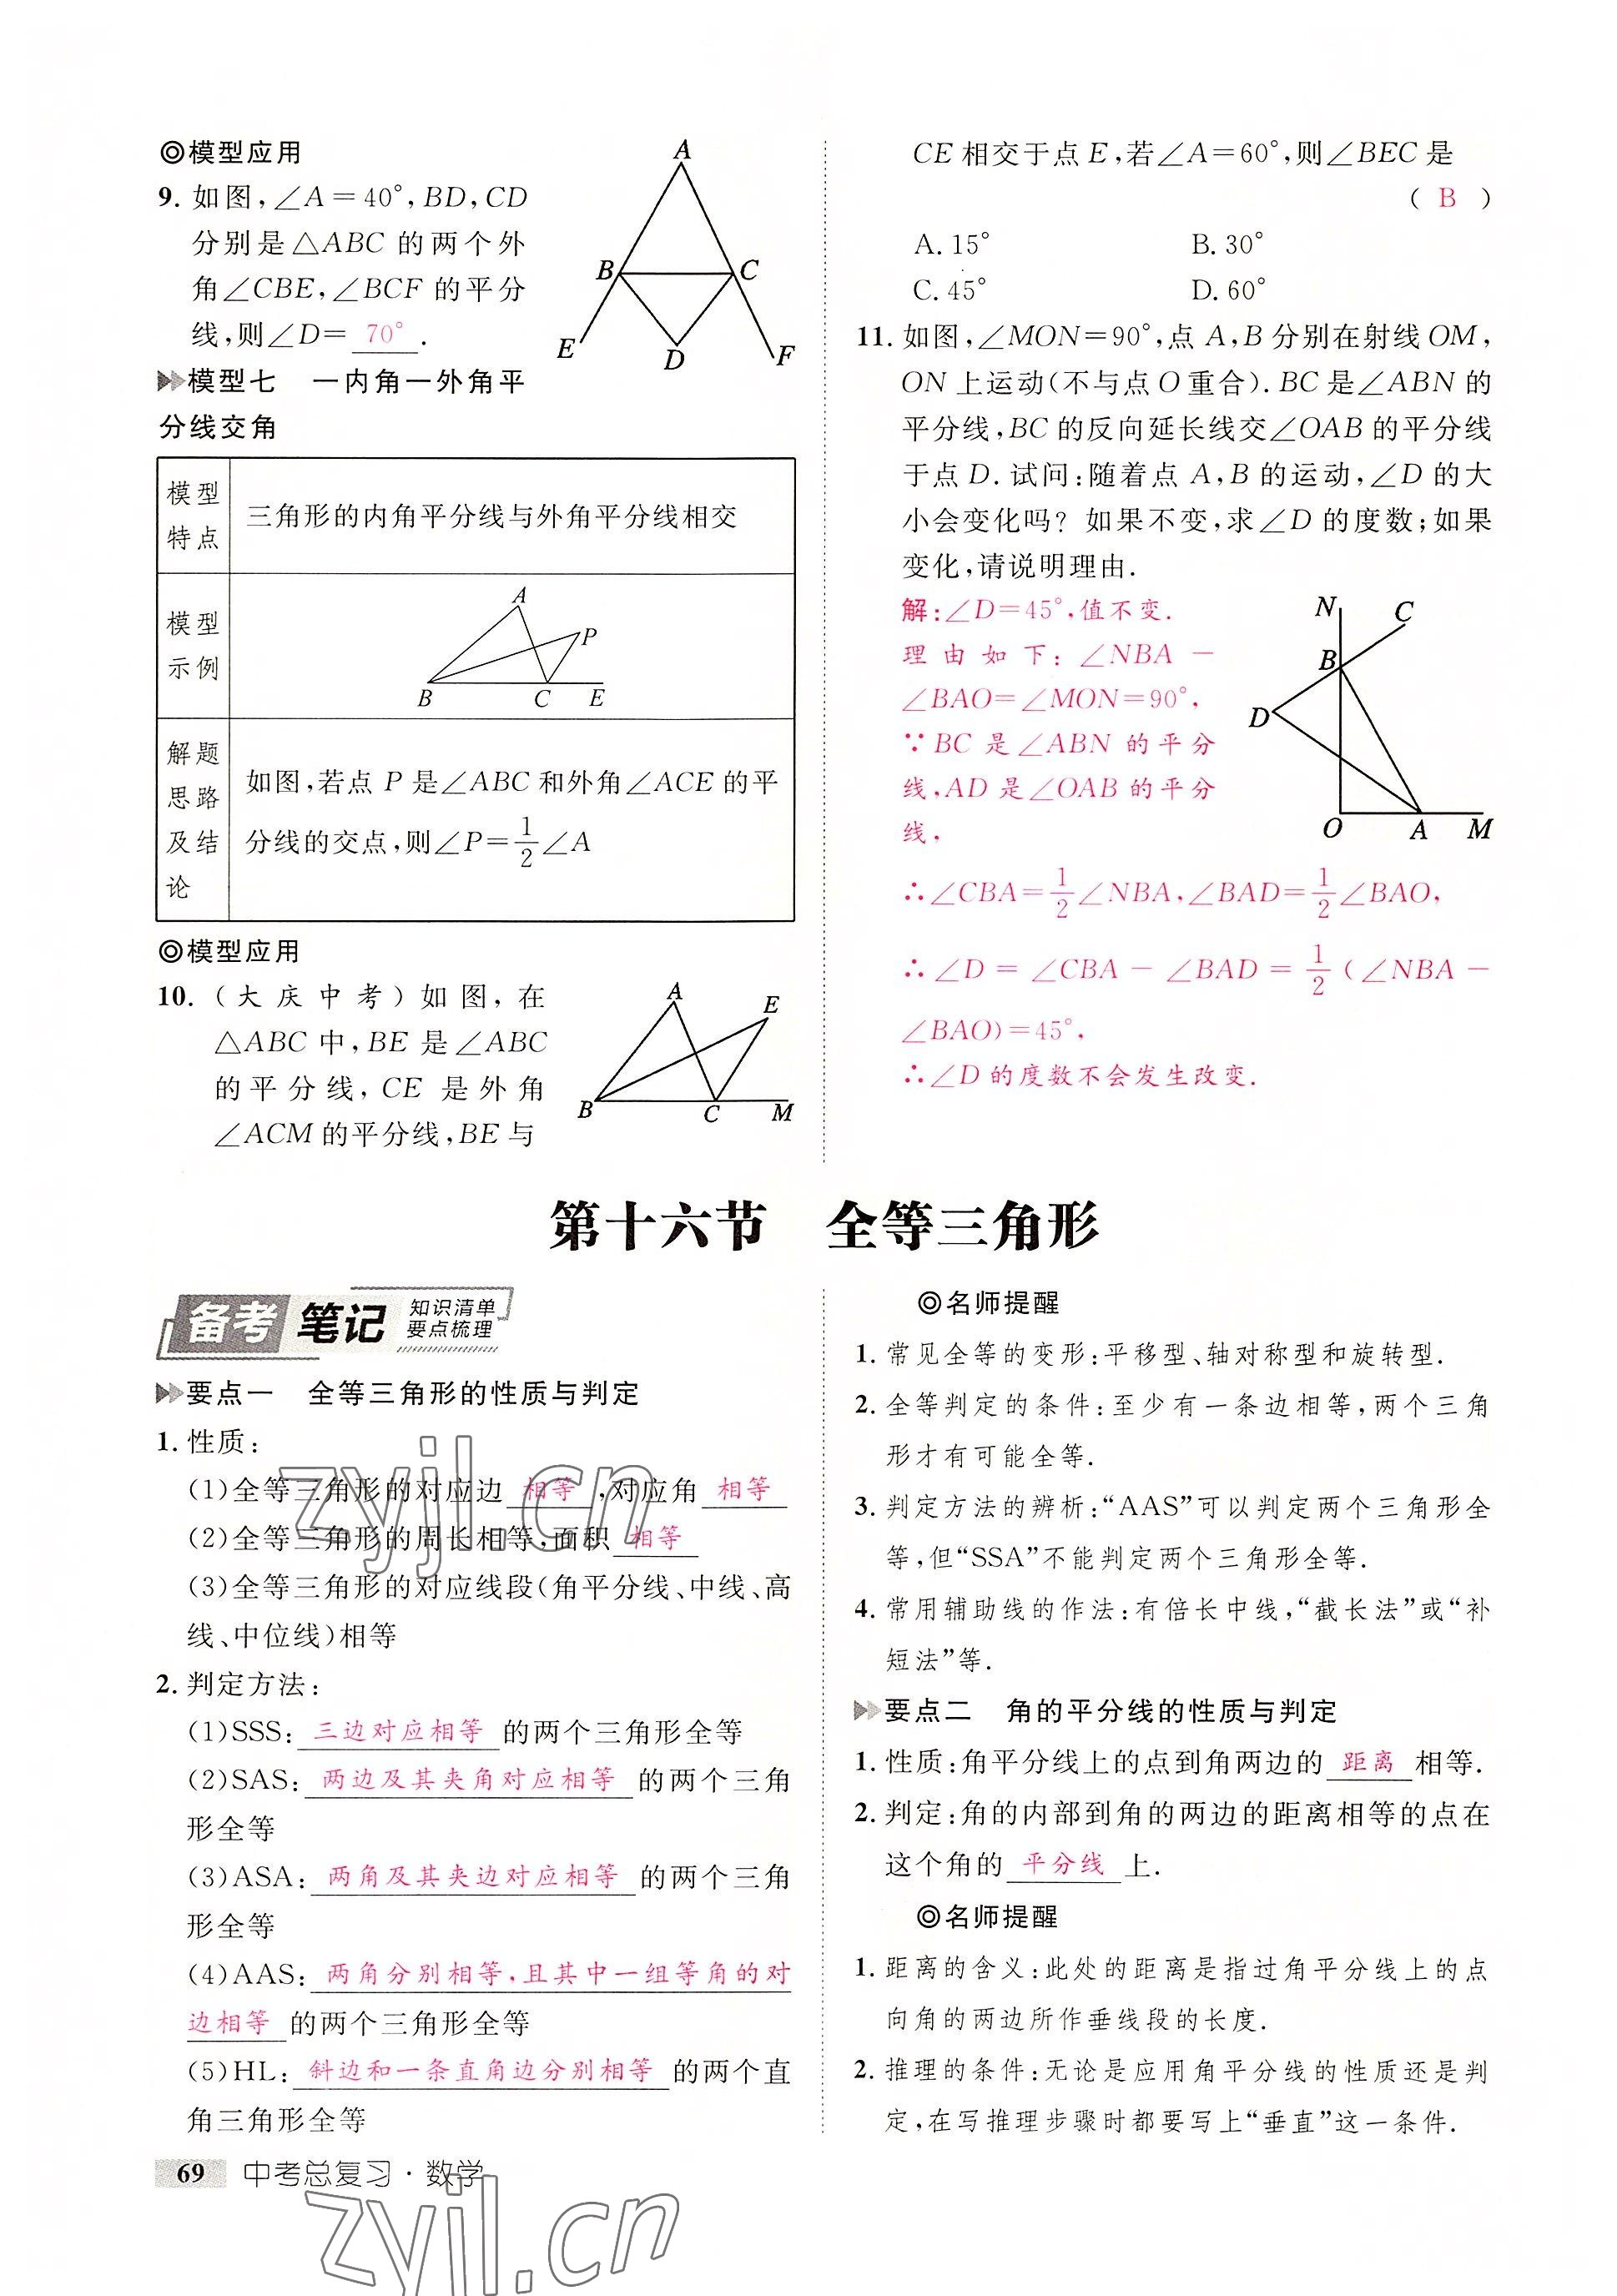 ◎模型应用
9. 如图,∠A=40°,BD,CD
分别是△ABC 的两个外
角∠CBE,∠BCF 的平分
线,则∠D= 70° .
A
B
C
E
D
F
模型七 一内角一外角平
分线交角
模型
特点
三角形的内角平分线与外角平分线相交
模型
示例
A
P
B
C
E
解题
思路
及结
论
如图,若点 P 是∠ABC 和外角∠ACE 的平
分线的交点,则∠P=1/2∠A
◎模型应用
10. (大庆中考)如图,在
△ABC 中,BE 是∠ABC
的平分线,CE 是外角
∠ACM 的平分线,BE 与
A
E
B
C
M
CE 相交于点 E,若∠A=60°,则∠BEC 是
( B )
A. 15° B. 30°
C. 45° D. 60°
11. 如图,∠MON=90°,点 A,B 分别在射线 OM,
ON 上运动(不与点 O 重合). BC 是∠ABN 的
平分线,BC 的反向延长线交∠OAB 的平分线
于点 D. 试问:随着点 A,B 的运动,∠D 的大
小会变化吗? 如果不变,求∠D 的度数;如果
变化,请说明理由.
解:∠D=45°,值不变.
理由如下:∠NBA-
∠BAO=∠MON=90°,
∵BC 是∠ABN 的平分
线,AD 是∠OAB 的平分
线.
∴∠CBA=1/2∠NBA,∠BAD=1/2∠BAO,
∴∠D=∠CBA-∠BAD=1/2(∠NBA-
∠BAO)=45°,
∴∠D 的度数不会发生改变.
N
C
B
D
O
A
M
第十六节 全等三角形
备考 笔记 知识清单
要点梳理
要点一 全等三角形的性质与判定
1. 性质:
(1)全等三角形的对应边 相等 ,对应角 相等
(2)全等三角形的周长相等,面积 相等
(3)全等三角形的对应线段(角平分线、中线、高
线、中位线)相等
2. 判定方法:
(1)SSS: 三边对应相等 的两个三角形全等
(2)SAS: 两边及其夹角对应相等 的两个三角
形全等
(3)ASA: 两角及其夹边对应相等 的两个三角
形全等
(4)AAS: 两角分别相等,且其中一组等角的对
边相等 的两个三角形全等
(5)HL: 斜边和一条直角边分别相等 的两个直
角三角形全等
◎名师提醒
1. 常见全等的变形:平移型、轴对称型和旋转型.
2. 全等判定的条件:至少有一条边相等,两个三角
形才有可能全等.
3. 判定方法的辨析:“AAS”可以判定两个三角形全
等,但“SSA”不能判定两个三角形全等.
4. 常用辅助线的作法:有倍长中线,“截长法”或“补
短法”等.
要点二 角的平分线的性质与判定
1. 性质:角平分线上的点到角两边的 距离 相等.
2. 判定:角的内部到角的两边的距离相等的点在
这个角的 平分线 上.
◎名师提醒
1. 距离的含义:此处的距离是指过角平分线上的点
向角的两边所作垂线段的长度.
2. 推理的条件:无论是应用角平分线的性质还是判
定,在写推理步骤时都要写上“垂直”这一条件.
69 中考总复习·数学
zyjl.cn
zyjl.cn